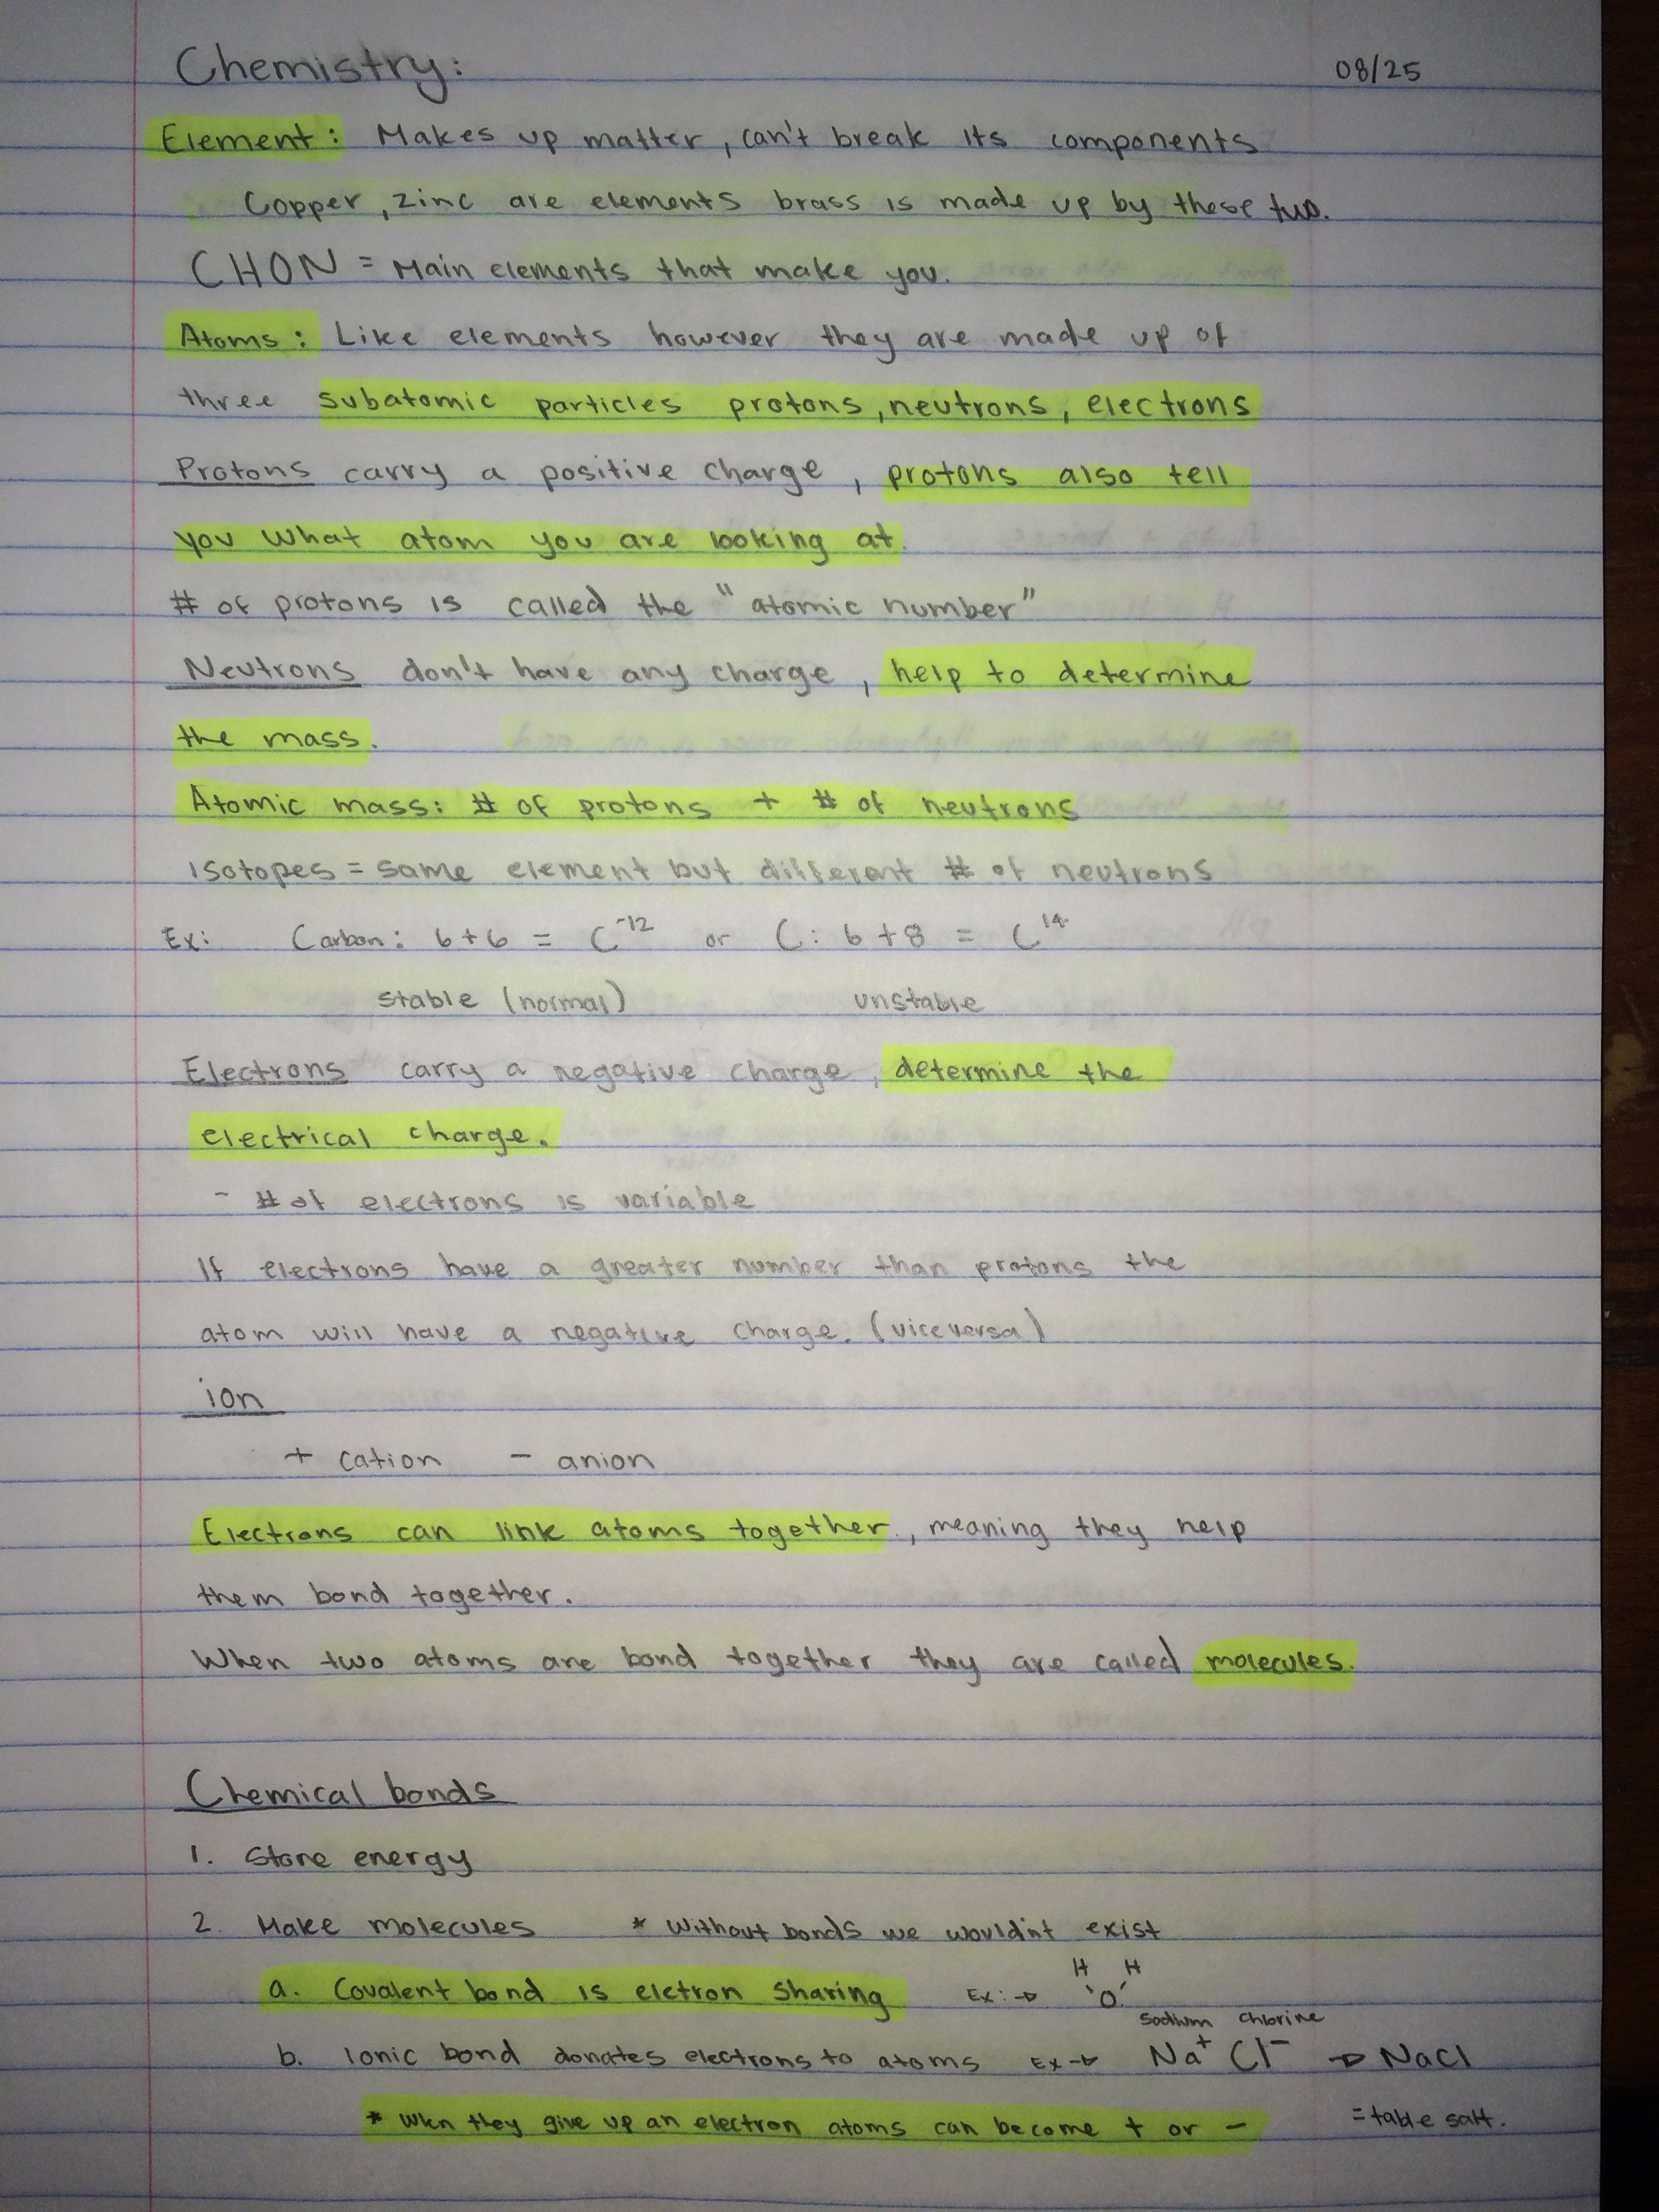 Chemistry: 08/25
Element: Makes up matter, can't break its components
Copper, zinc are elements brass is made up by these two.
CHON = Main elements that make you.
Atoms: Like elements however they are made up of
three subatomic particles protons, neutrons, electrons
Protons carry a positive charge, protons also tell
you what atom you are looking at.
# of protons is called the "atomic number"
Neutrons don't have any charge, help to determine
the mass.
Atomic mass: # of protons + # of neutrons
isotopes = same element but different # of neutrons
Ex: Carbon: 6+6 = C⁻¹² or C: 6+8 = C¹⁴
stable (normal) unstable
Electrons carry a negative charge, determine the
electrical charge.
- # of electrons is variable
If electrons have a greater number than protons the
atom will have a negative charge. (viceversa)
ion
+ cation - anion
Electrons can link atoms together., meaning they help
them bond together.
When two atoms are bond together they are called molecules.
Chemical bonds
1. Store energy
2. Make molecules * Without bonds we wouldn't exist
H H
a. Covalent bond is elctron sharing Ex: → O
Sodium Chlorine
b. Ionic bond donates electrons to atoms Ex → Na⁺ Cl⁻ → NaCl
* When they give up an electron atoms can become + or - = table salt.